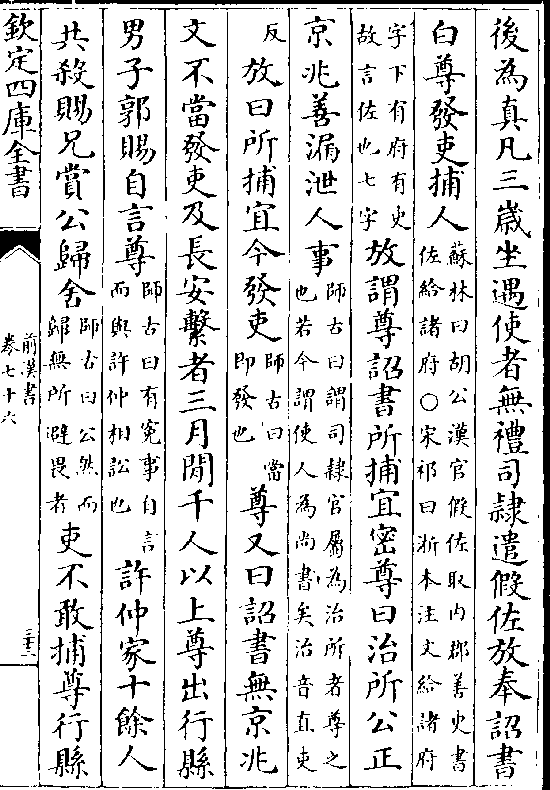 後為真凡三歲坐遇使者無禮司隸遣假佐放奉詔書
白尊發吏捕人
蘇林曰胡公漢官假佐取内郡善史書
佐給諸府○宋祁曰浙本注文給諸府
字下有府有史
故言佐也七字
放謂尊詔書所捕宜密尊曰治所公正
京兆善漏泄人事
師古曰謂司隸官屬為治所者尊之
也若今謂使人為尚書矣治音直吏
反
放曰所捕宜今發吏
師古曰當
即發也
尊又曰詔書無京兆
文不當發吏及長安繫者三月間千人以上尊出行縣
男子郭賜自言尊
師古曰有寃事自言
而與許仲相訟也
許仲家十餘人
共殺賜兄賞公歸舍
師古曰公然而
歸無所避畏者
吏不敢捕尊行縣
欽定四庫全書
前漢書
卷七十六